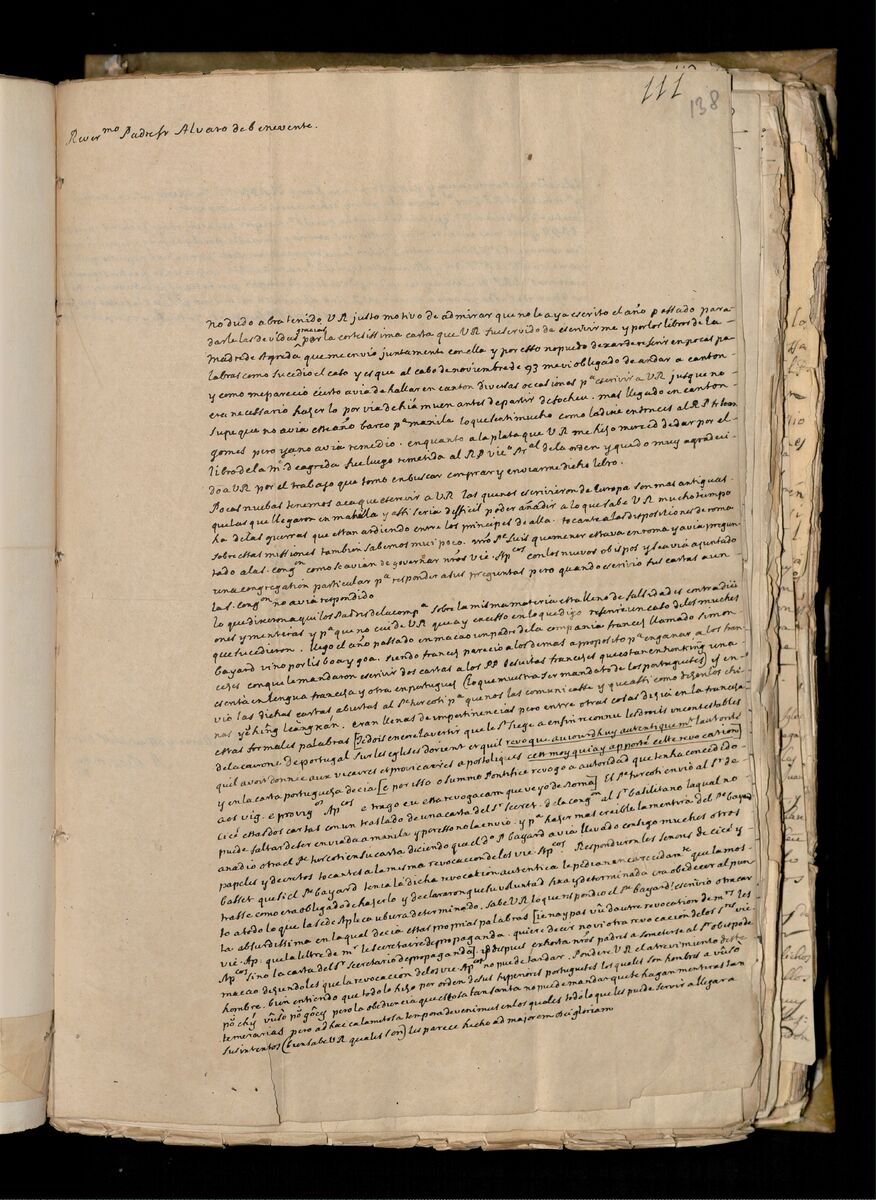 111
138
Rever.mo Padre fr Alvaro de benevente.
no dudo abra tenido VR justo motivo de admirar que no le aya escrito el año passado para
darle las devidas gracias por la cortesissima carta que VR fue servido de escrivirme y por los libros de la
Madre de Agreda que me envio juntamente con ella y por esso no puedo dexar de referir en pocas pa-
labras como sucedio el caso y es que al cabo de noviembre de 93 me vi obligado de andar a canton-
y como me parecio cierto avia de hallar en canton diversas occasiones pa escrivir a VR jusque no
era necessario hazerlo por via de hiá muen antes de partir de focheu. mas llegado en canton-
supe que no avia este año barco pa manila lo que senti mucho como la dixe entonces al R P fr Ioan
gomes pero ya no avia remedio. en quanto a la plata que VR me hizo merced de dar por el-
libro de la M. de agreda fue luego remetida al R P vic.o Pr.al de la orden y quedo muy agradeci-
do a VR por el trabajo que tomo en buscar comprar y enviarme dicho libro.
Pocas nuebas tenemos aca que escrivir a VR las que nos escrivieron de Europa son mas antiguas-
que las que llegaron en manilla y assi seria difficil poder añadir a lo que sabe VR mucho tiempo
ha de las guerras que estan ardiendo entre los principes de alla. tocante a las disposiciones de roma
sobre estas missiones tambien sabemos mui poco. nro Sr Luis quemener estava en roma y avia pregun-
tado a la S. congon como se avian de governar nros vic. Apcos con los nuevos obispos y se avia ajuntado
una congregation particular pa responder a sus preguntas pero quando escrivio sus cartas aun-
la S. congon no avia respondido
lo que dixeron aqui los Padres de la compa sobre la misma materia esta lleno de falsidades contradi-
ones y mentiras y pa que no cuide VR que ay excesso en lo que digo referire un caso de los muchos
que sucedieron. llego el año passado en macao un padre de la compania frances llamado simon-
bayard vino por lisboa y goa. siendo frances parecio a los demas a proposito pa enganar a los fran-
ceses con que le mandaron escrivir dos cartas a los PP Jesuitas franceses que estan en nonking una-
escrita en lengua francesa y otra en portugues (lo que muestra ser mandato de los portugueses) y en-
vio las dichas cartas abiertas al Pe turcoti pa que nos las comunicasse y que assi como dizen los chi-
nas
eran llenas de impertinencias pero entre otras cosas dezia en la francesa
estas formales palabras [Je dois encore l'avertir que le St siege a enfin reconnu les droits incontestables
de la couronne de portugal sur les eglises d'orient et qu'il revoque aujourd'huy autentiquemt l'autorité
qu'il avoit donnée aux vicaires et provicaires apostoliques cest moy qui ay apporté cette revocation]
y en la carta portuguesa decia [e por isso o summo Pontifice revogo a autoridad que tenha concedido-
aos vig. e provigos Apcos e trago eu esta revogacam que vejo de Roma] El Pe turcoti envio al Sr de
cicé estas dos cartas con un traslado de una carta del Sr secret. de la congon al Sr basilitano la qual no-
puede faltar de ser enviada a manila y por esso no la envio. y pa hazer mas creible la mentira del Pe bayard
anadio otra el Pe turcoti en su carta diciendo que el do P bayard avia llevado consigo muchos otros
papeles y decretos tocantes a la misma revocacion de los vic. Apcos. Respondieron los senores de cicé y
basset que si el Pe bayard tenia la dicha revocation autentica le pedian encarecidamte que la mos-
trasse como era obligado de hazerlo y declararon que su voluntad fixa y determinada era obedecer al pun-
to a todo lo que la sede Aplca ubiera determinado. sabe VR lo que respondio el Pe bayard! escrivio otra car-
ta absurdissima en la qual decia estas proprias palabras [je n'ay pas vû d'autre revocation de mrs les
vic. Ap. que la lettre de mr le secretaire de propaganda. quiere decir no vi otra revocación de los Sres vic.
Apcos sino la carta del Sr secretario de propaganda]. y despues exhorta nros padres a someterse al Sr obispo de
macao diziendoles que la revocación de los vic Apcos no puede tardar. Pondere VR el atrevimiento deste
hombre. bien entiendo que todo lo hizo por orden de sus superiores portugueses los quales son hombres
temerarias pero ad haec calamitosa tempora devenimus en los quales todo lo que les puede servir a llegar a
sus intentos (bien sabe VR quales son) les parece hecho ad majorem Dei gloriam